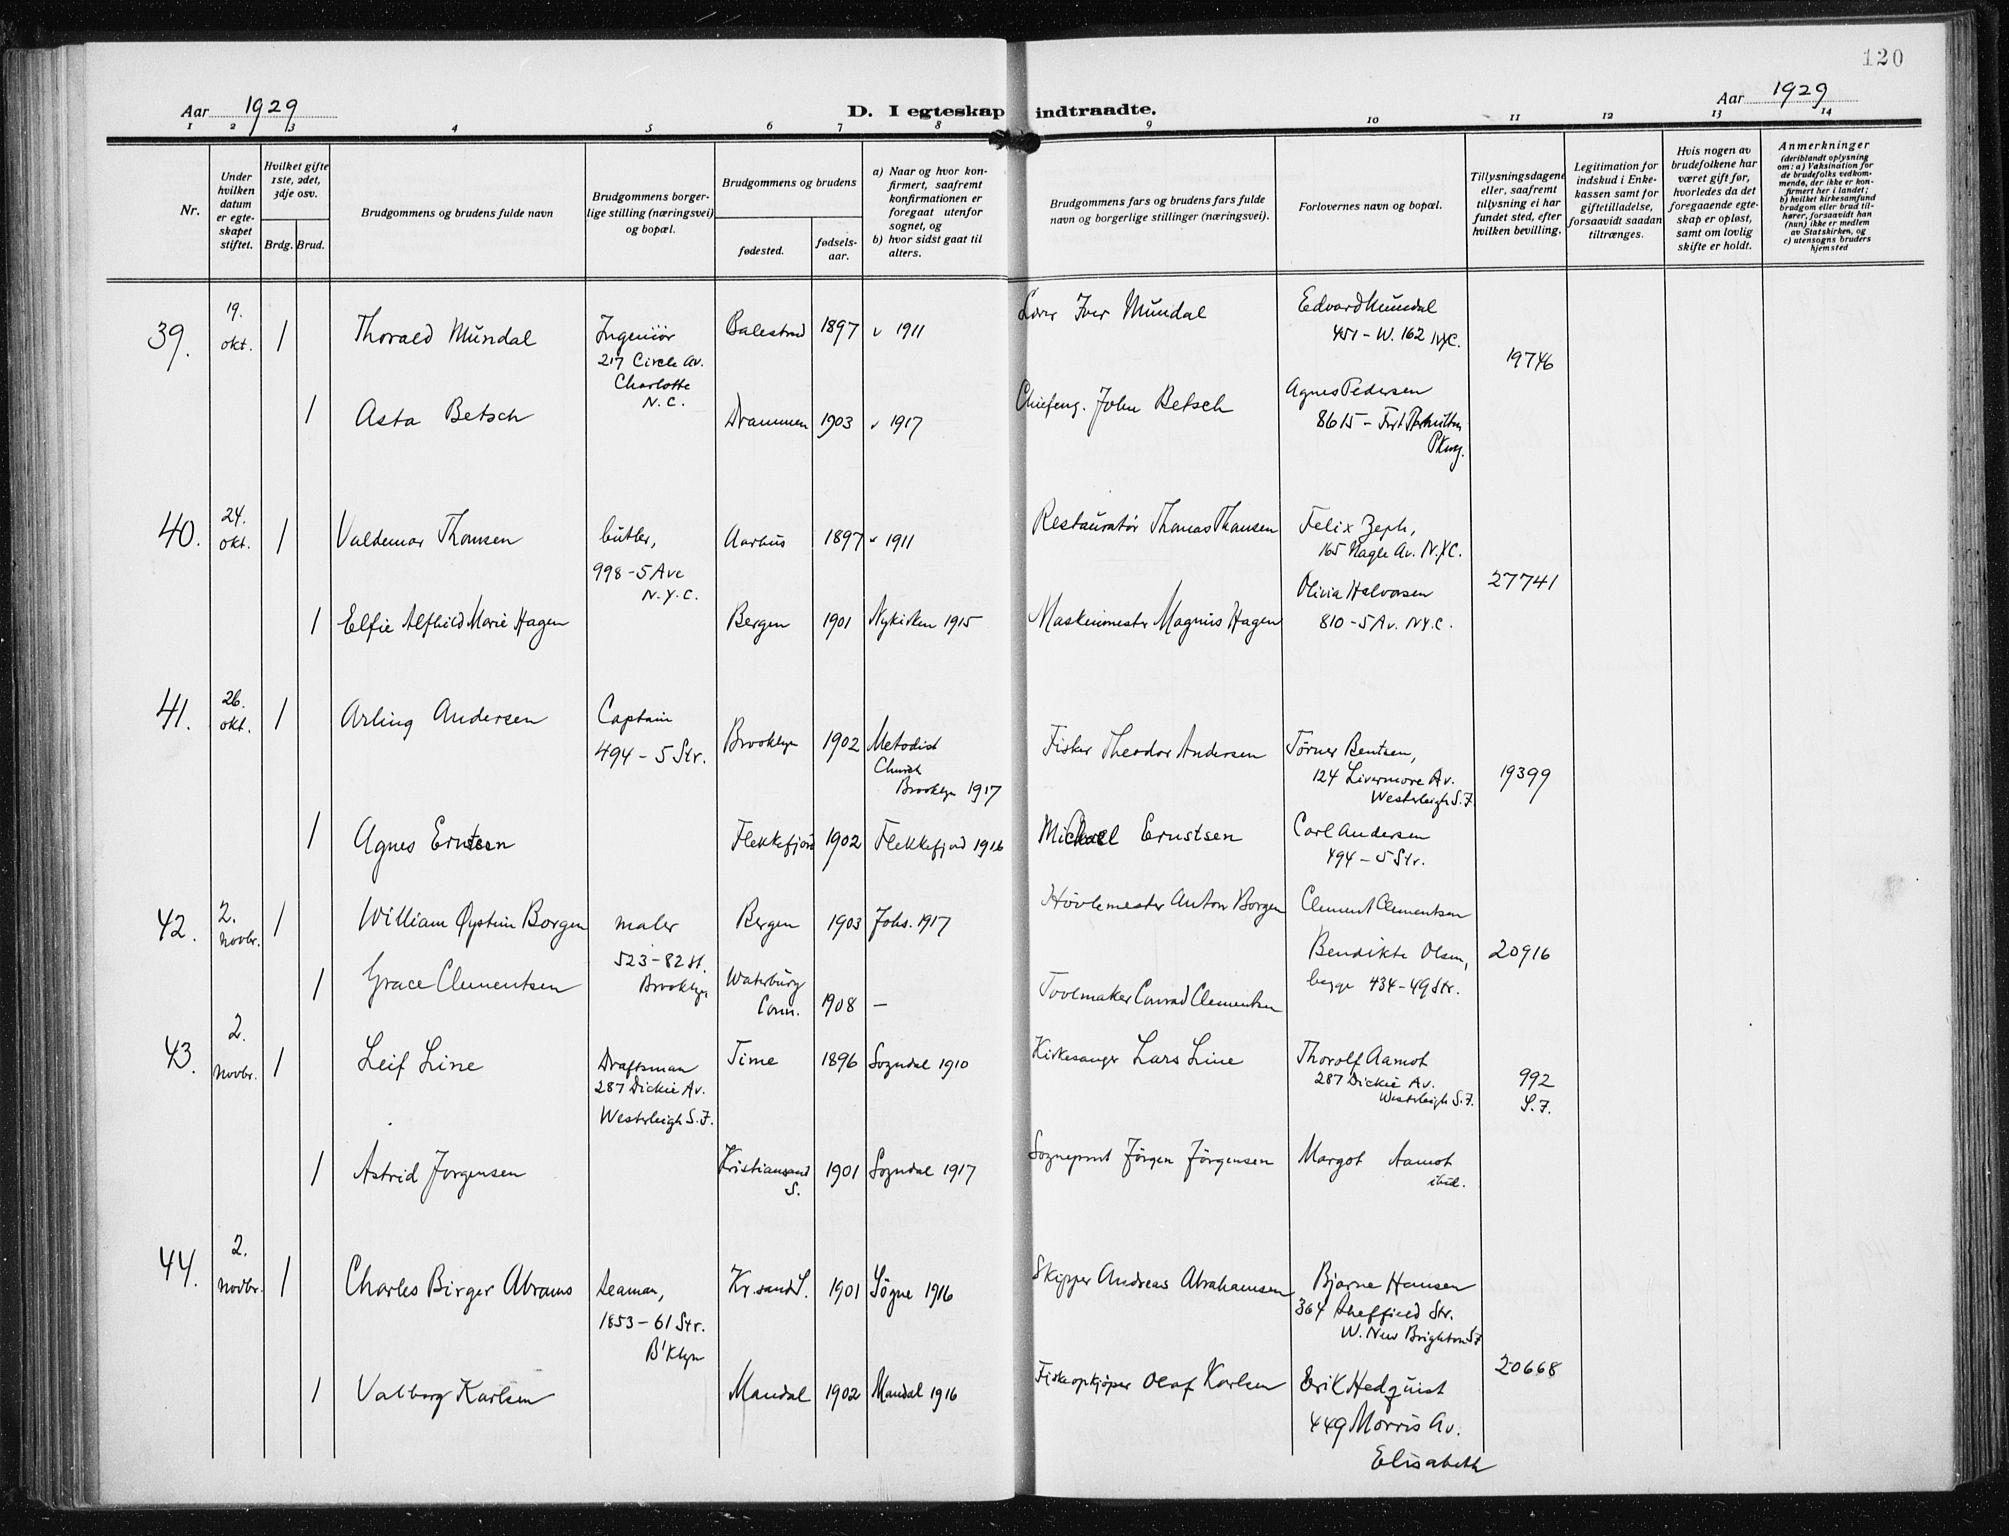 120
Aar 1929
D. I egteskap indtraadte.
Aar 1929
1 2 3 4 5 6 7 8 9 10 11 12 13 14
Nr.
Under hvilken datum er egteskapet stiftet.
Hvilket gifte 1ste, 2det, 3dje osv.
Brdg. Brud.
Brudgommens og brudens fulde navn
Brudgommens borgerlige stilling (næringsvei) og bopæl.
Brudgommens og brudens
fødested.
fødselsaar.
a) Naar og hvor konfirmert, saafremt konfirmationen er foregaat utenfor sognet, og
b) hvor sidst gaat til alters.
Brudgommens fars og brudens fars fulde navn og borgerlige stillinger (næringsvei).
Forlovernes navn og bopæl.
Tillysningsdagene eller, saafremt tillysning ei har fundet sted, efter hvilken bevilling.
Legitimation for indskud i Enkekassen samt for giftetilladelse, forsaavidt saadan tiltrænges.
Hvis nogen av brudefolkene har været gift før, hvorledes da det foregaaende egteskap er opløst, samt om lovlig skifte er holdt.
Anmerkninger
(deriblandt oplysning om: a) Vaksination for de brudefolks vedkommende, der ikke er konfirmert her i landet;
b) hvilket kirkesamfund brudgom eller brud tilhører, forsaavidt han (hun) ikke er medlem av Statskirken, og
c) utensogns bruders hjemsted
39. 19. okt. 1 Thorald Mundal Ingeniør Balestrand 1897 v 1911 Iver Mundal Edvard Mundal
217 Circle Av. 451 - W. 162 N.Y.C.
Charlotte 19746
N. C.
1 Asta Betsch Drammen 1903 v 1917 Chiefeng. John Betsch Agnes Pedersen
8615 - Fort Hamilton
Pkwy.
40. 24. okt. 1 Valdemar Thomsen butler, Aarhus 1897 v 1911 Restauratør Thomas Thomsen Felix Zeph,
998 - 5 Ave 165 Nagle Av. N.Y.C.
N.Y.C. 27741
1 Elfie Alfhild Marie Hagen Bergen 1901 Nykirken 1915 Maskinmester Magnus Hagen Olivia Halvorsen
810 - 5 Av. N.Y.C.
41. 26. okt. 1 Arling Andersen Captain Brooklyn 1902 Metodist Fisker Theodor Andersen Tørner Bentsen,
494 - 5 Str. Church 124 Livermore Av. 19399
Brooklyn 1917 Westerleigh S.I.
1 Agnes Erntsen Flekkefjord 1902 Flekkefjord 1916 Michael Ernstsen Carl Andersen
494 - 5 Str.
42. 2. novbr. 1 William Øystein Borgen maler Bergen 1903 Johs. 1917 Høvlemester Anton Borgen Clement Clementsen
523 - 82 st. Bendikte Olsen, 20916
Brooklyn begge 434 - 49 Str.
1 Grace Clementsen Waterbury Conn. 1908 — Toolmaker Conrad Clementsen
43. 2. novbr. 1 Leif Line Draftsman Time 1896 Sogndal 1910 Kirkesanger Lars Line Thorolf Aamot
287 Dickie Av. 287 Dickie Av. 992
Westerleigh S.I. Westerleigh S.I. S.I.
1 Astrid Jørgensen Kristiansand S. 1901 Sogndal 1917 Sogneprest Jørgen Jørgensen Margot Aamot
ibid.
44. 2. novbr. 1 Charles Birger Abrams seaman, Kr.sand S. 1901 Søgne 1916 Skipper Andreas Abrahamsen Bjarne Hansen
1853 - 61 Str. 364 Sheffield Str.
B'klyn W. New Brighton S.I.
20668
1 Valborg Karlsen Mandal 1902 Mandal 1916 Fiskeopkjøper Olaf Karlsen Erik Hedquist
449 Morris Av.
Elisabeth